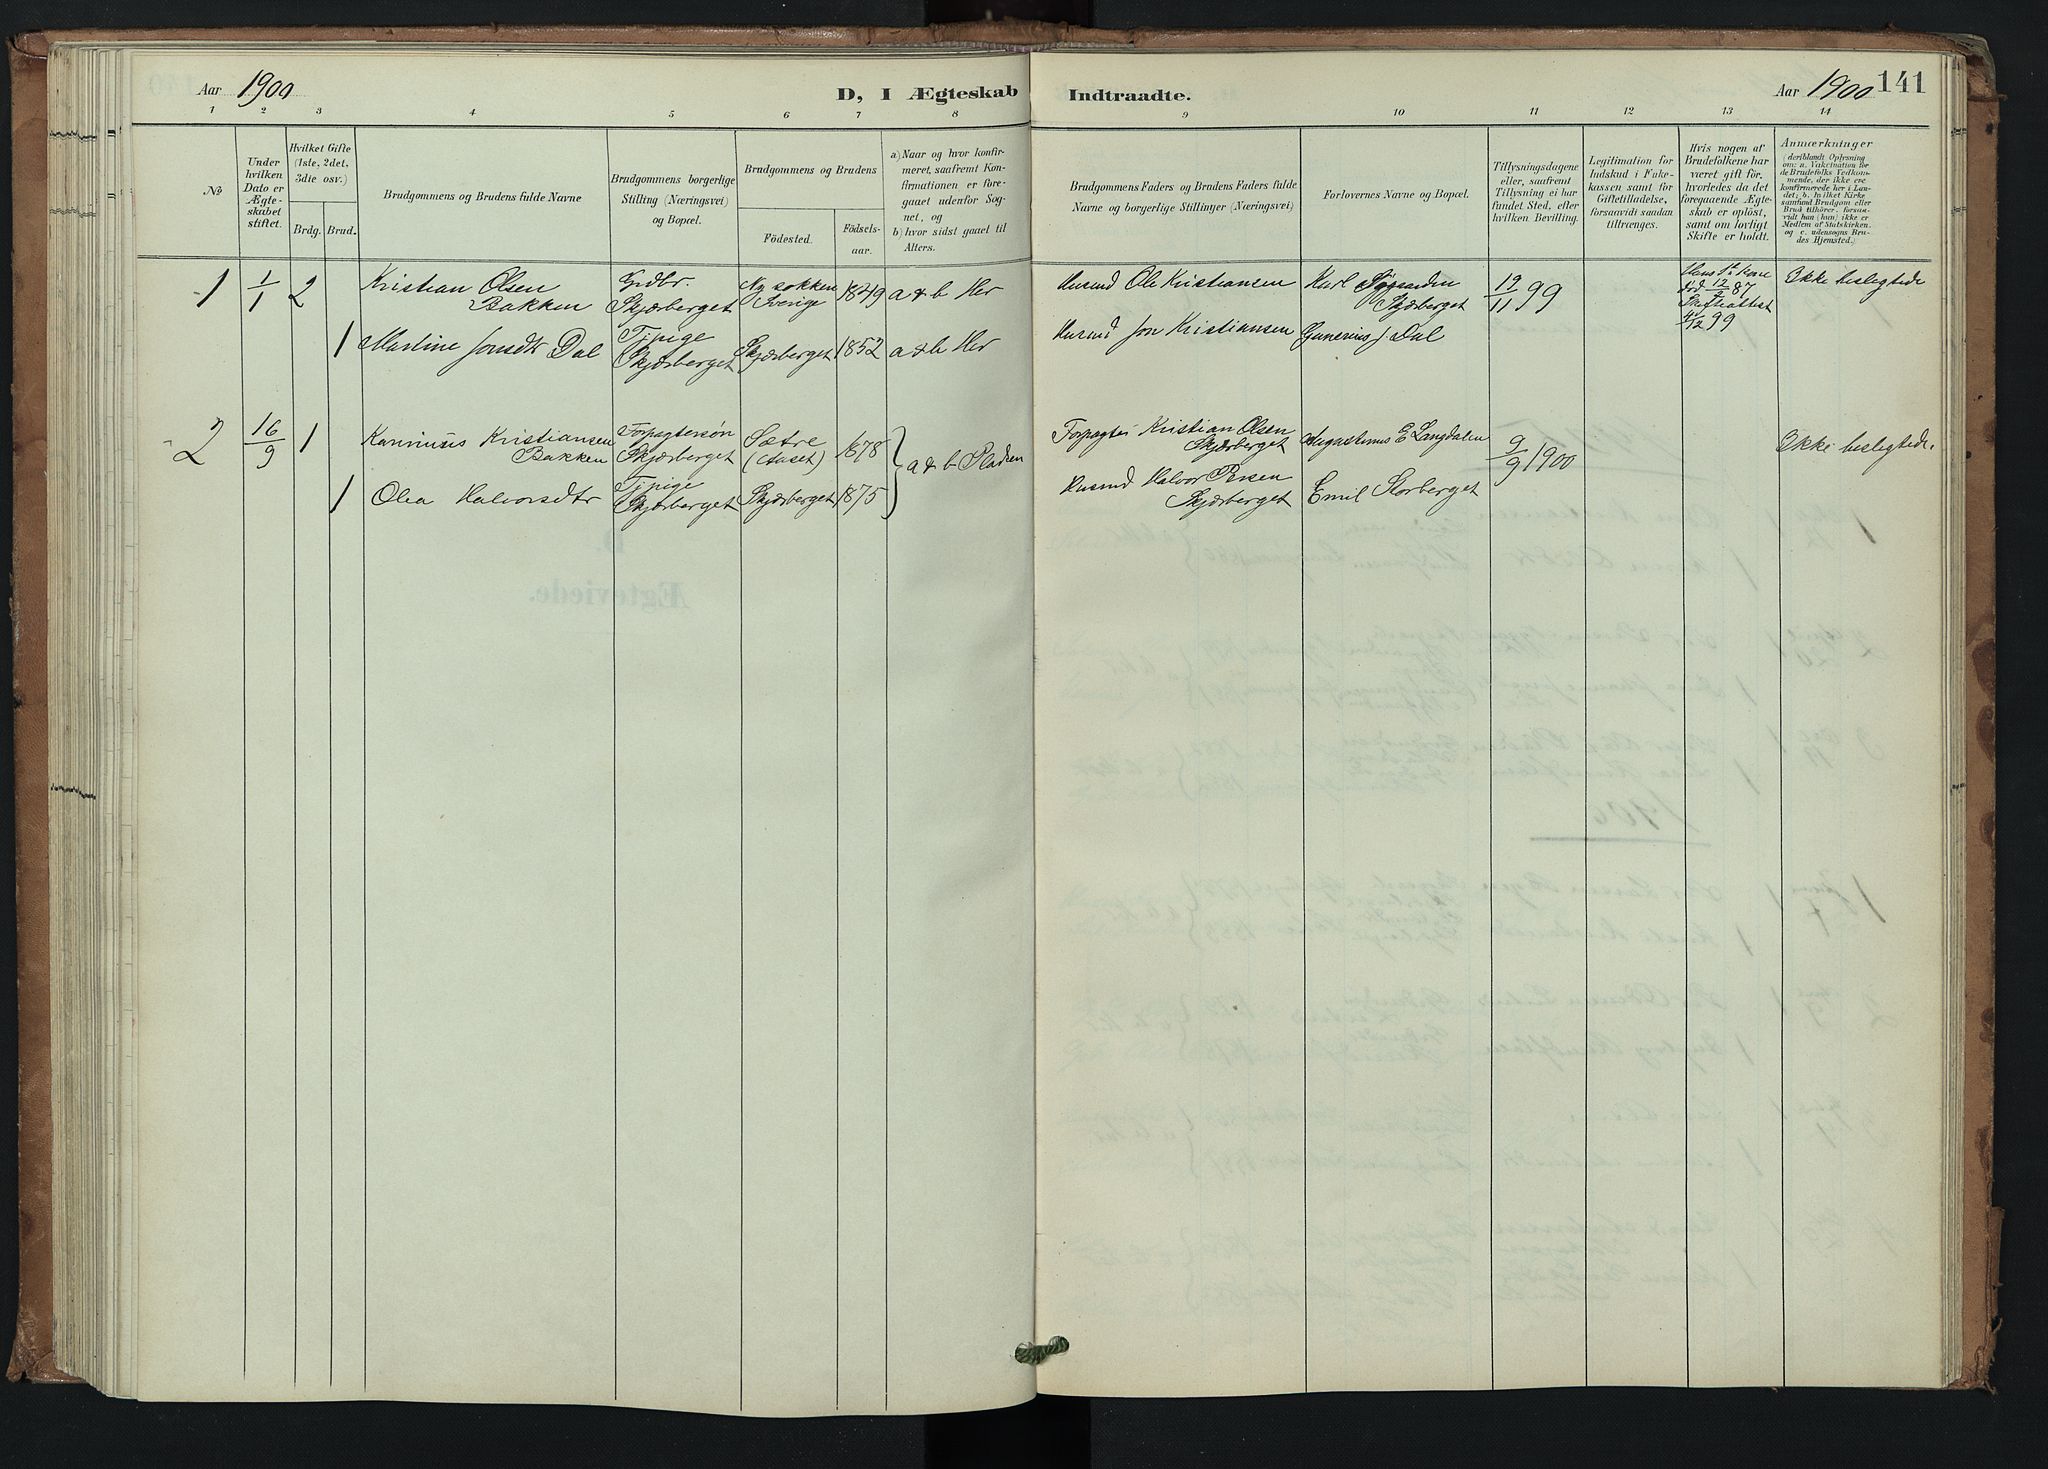 Aar 1900
D, I Ægteskab
Indtraadte.
Aar 1900
141
1 2 3 4 5 6 7 8
9 10 11 12 13 14
No
Under hvilken Dato er Ægteskabet stiftet.
Hvilket Gifte (1ste, 2det, 3die osv.)
Brdg. Brud.
Brudgommens og Brudens fulde Navne
Brudgommens borgerlige Stilling (Næringsvei) og Bopæl.
Brudgommens og Brudens
Födested.
Födselsaar.
a) Naar og hvor konfirmeret, saafremt Konfirmationen er foregaaet udenfor Sognet, og
b) hvor sidst gaaet til Alters.
Brudgommens Faders og Brudens Faders fulde
Navne og borgerlige Stillinger (Næringsvei)
Forlovernes Navne og Bopæl.
Tillysningsdagene eller, saafremt Tillysning ei har fundet Sted, efter hvilken Bevilling.
Legitimation for Indskud i Enkekassen samt for Giftetilladelse, forsaavidt saadan tiltrænges.
Hvis nogen af Brudefolkene har været gift för, hvorledes da det foregaaende Ægteskab er oplöst, samt om lovligt Skifte er holdt.
Anmærkninger
(deriblandt Oplysning om: a. Vakcination for de Brudefolks Vedkommende, der ikke ere konfirmerede her i Landet, b. hvilket Kirkesamfund Brudgom eller Brud tilhörer, forsaavidt han (hun) ikke er Medlem af Statskirken, og c. udensogns Brudes Hjemsted.)
1 1/1 2 Kristian Olsen Grdbr. Ny sokken 1849 a & b Her
Bakken Skjærberget Sverige
Husmd Ole Kristiansen Karl
Skjærberget
19/11 99
Hans 1ste Kone
död 12/ 87
Skifteattest
/12 99
Ikke beslegtede
1 Martine Jonsdtr Dal Tjpige Skjærberget 1852 a & b Her
Skjærberget
Husmd Jon Kristiansen Gunerius J. Dal
2 16/9 1 Karinius Kristiansen Forpagtersön Sætre 1878
Bakken Skjærberget (Aaset)
a & b Pladsen
Forpagter Kristian Olsen
Skjærberget
Augustinus E Langdalen
9/9 1900
Ikke beslegtede.
1 Olea Halvorsdtr Tjpige Skjærberget 1875
Skjærberget
Husmd Halvor Persen
Skjærberget
Emil Storberget